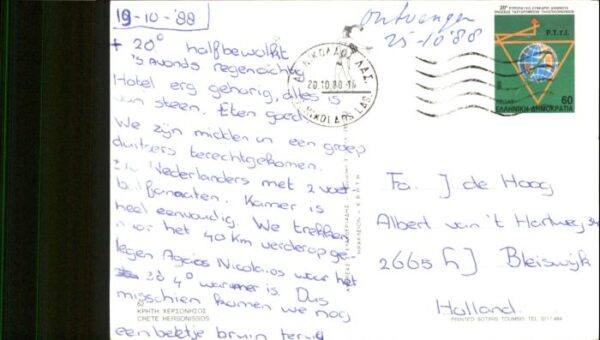 19-10-'88
+ 20° halfbewolkt
's avonds regenachtig
Hotel erg gehorig, alles is
van steen. Eten goed
We zijn midden in een groep
duitsers terechtgekomen.
Nederlanders met 2 voet
balfanaten. Kamer is
heel eenvoudig. We trekken
naar het 40 km verderop ge
legen Agaios Nicolaios waar het
3 à 4° warmer is. Dus
misschien komen we nog
een beetje bruin terug
ΚΡΗΤΗ ΧΕΡΣΟΝΗΣΟΣ
CRETE HERSONISSOS
ontvangen
25-10-'88
20.10.88
P.T.T.I.
60
ΕΛΛΗΝΙΚΗ ΔΗΜΟΚΡΑΤΙΑ
Fa. J de Hoog
Albert van 't Hartweg 34
2665 HJ Bleiswijk
Holland.